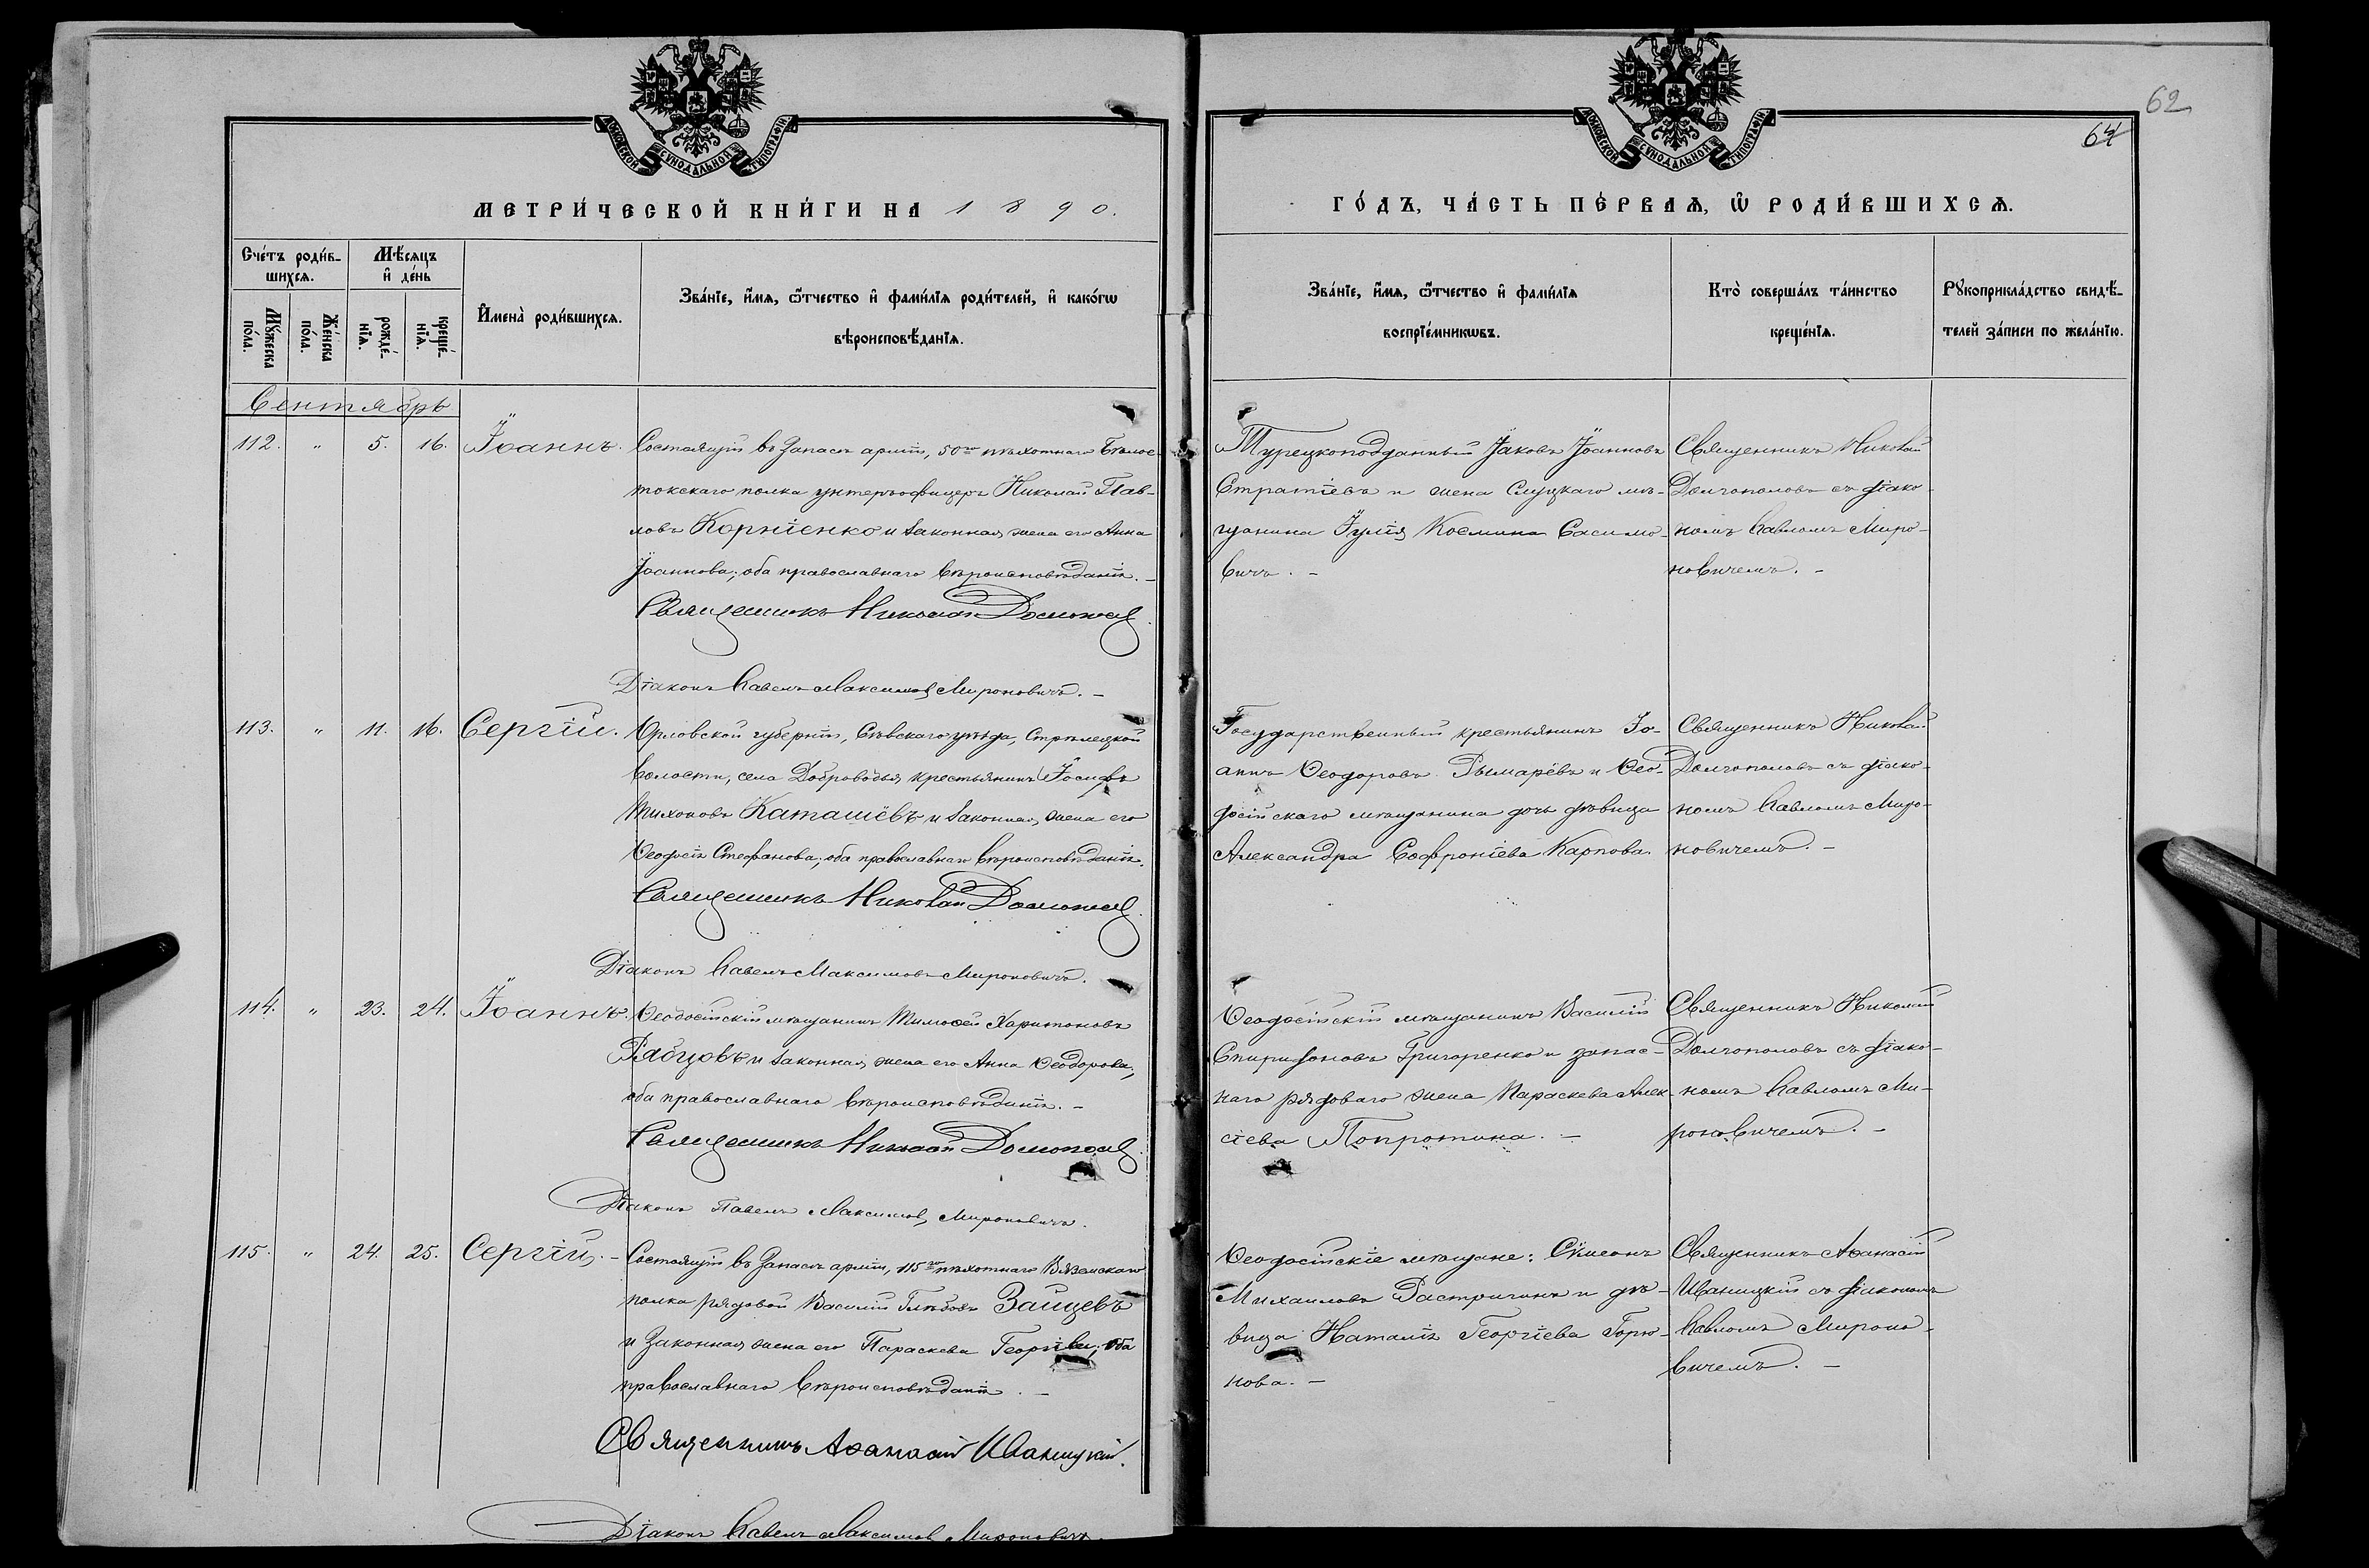 МОСКОВСКОЙ СѴНОДАЛЬНОЙ ТИПОГРАФІИ
МЕТРИ́ЧЕСКОЙ КНИ́ГИ НА 1890.
Сче́тъ роди́в-
шихсѧ.
Мѣ́сѧцъ
и҆ де́нь
Мꙋ́жеска по́ла.
Же́нска по́ла.
рожде́-
нїѧ.
креще́-
нїѧ.
И҆мена̀ роди́вшихсѧ.
Зва́нїе, и҆́мѧ, ѻ҆́тчество и҆ фами́лїѧ роди́телей, и҆ како́гѡ
вѣроисповѣ́данїѧ.
Сентябрь
112. " 5. 16. Іоаннъ.
Состоящій въ запасѣ арміи, 50го пѣхотнаго Бѣлос-
токскаго полка унтеръ-офицеръ Николай Пав-
ловъ Корніенко и законная жена его Анна
Іоаннова; оба православнаго вѣроисповѣданія. –
Священникъ Николай Долгополовъ
Діаконъ Павелъ Максимовъ Мироновичъ. –
113. " 11. 16. Сергій.
Орловской губерніи, Сѣвскаго уѣзда, Стрѣлецкой
волости, села Доброводья, крестьянинъ Іосифъ
Тихоновъ Каташёвъ и законная жена его
Ѳеодосія Стефанова; оба православнаго вѣроисповѣданія.
Священникъ Николай Долгополовъ
Діаконъ Павелъ Максимовъ Мироновичъ.
114. " 23. 24. Іоаннъ.
Ѳеодосійскій мѣщанинъ Тимоѳей Харитоновъ
Рябцовъ и законная жена его Анна Ѳеодорова;
оба православнаго вѣроисповѣданія. –
Священникъ Николай Долгополовъ
Діаконъ Павелъ Максимовъ Мироновичъ.
115. " 24. 25. Сергій. –
Состоящій въ запасѣ арміи, 115го пѣхотнаго Вяземскаго
полка рядовой Василій Глѣбовъ Зайцевъ
и законная жена его Параскева Георгіева; оба
православнаго вѣроисповѣданія. –
Священникъ Аѳанасій Иваницкій.
Діаконъ Павелъ Максимовъ Мироновичъ.
62
64
МОСКОВСКОЙ СѴНОДАЛЬНОЙ ТИПОГРАФІИ
ГО́ДЪ, ЧА́СТЬ ПЕ́РВАѦ, Ѡ҆ РОДИ́ВШИХСѦ.
Зва́нїе, и҆́мѧ, ѻ҆́тчество и҆ фами́лїѧ
воспрїе́мникѡвъ.
Кто̀ соверша́лъ та́инство
креще́нїѧ.
Рꙋкоприкла́дство свидѣ́-
телей за́писи по жела́нїю.
Турецкоподданный Іаковъ Іоанновъ
Стратіевъ и жена Слуцкаго мѣ-
щанина Іулія Космина Сасимо-
вичъ. –
Священникъ Николай
Долгополовъ съ діако-
номъ Павломъ Миро-
новичемъ. –
Государственный крестьянинъ Іо-
аннъ Ѳеодоровъ Рымарёвъ и Ѳео-
досійскаго мѣщанина дочь дѣвица
Александра Софроніева Карпова.
Священникъ Николай
Долгополовъ съ діако-
номъ Павломъ Миро-
новичемъ. –
Ѳеодосійскій мѣщанинъ Василій
Спиридоновъ Григоренко и запас-
наго рядоваго жена Параскева Алек-
сіева Попротина. –
Священникъ Николай
Долгополовъ съ діако-
номъ Павломъ Ми-
роновичемъ. –
Ѳеодосійскіе мѣщане: Сѷмеонъ
Михаиловъ Растригинъ и дѣ-
вица Наталія Георгіева Горю-
нова. –
Священникъ Аѳанасій
Иваницкій съ діакономъ
Павломъ Мироно-
вичемъ. –